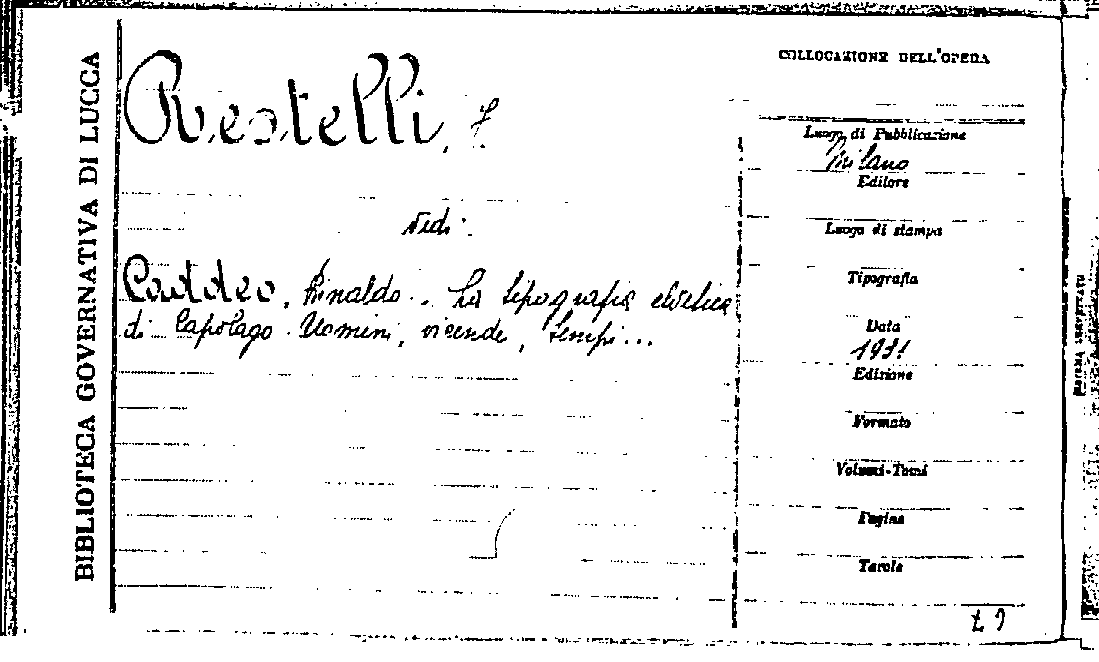 BIBLIOTECA GOVERNATIVA DI LUCCA
Restelli, F.
Vedi:
Caddeo, Rinaldo.. La tipografia elvetica
di Capolago. Uomini, vicende, tempi...
COLLOCAZIONE DELL'OPERA
Luogo di Pubblicazione
Milano
Editore
Luogo di stampa
Tipografia
Data
1931
Edizione
Formato
Volumi-Tomi
Pagine
Tavole